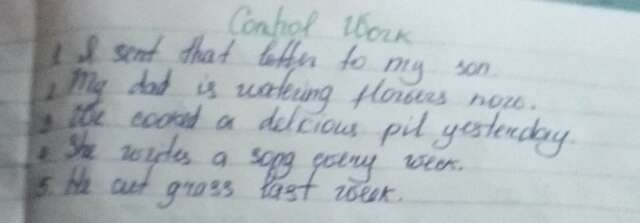 Control Work
1 I sent that letter to my son.
2 My dad is watering flowers now.
3 We cooked a delcious pil yesterday.
4 She writes a song every week.
5. He cut grass last week.